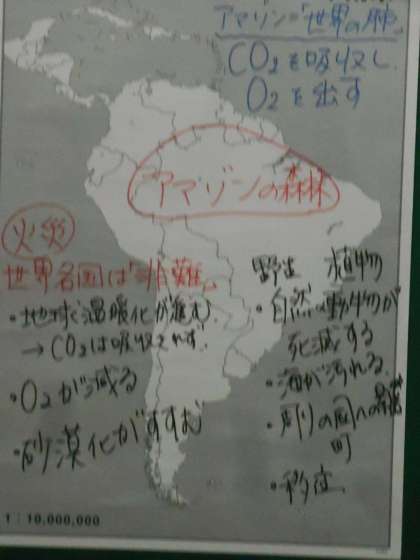 アマゾン=「世界の肺」
CO2を吸収し
O2を出す
アマゾンの森林
火災
世界各国は「非難」
・地球温暖化が進む
→CO2は吸収されず
・O2が減る
・砂漠化がすすむ
野生 植物
・自然の動物が
死滅する
・海が汚れる
・周りの国への
町
・移住
1:10,000,000